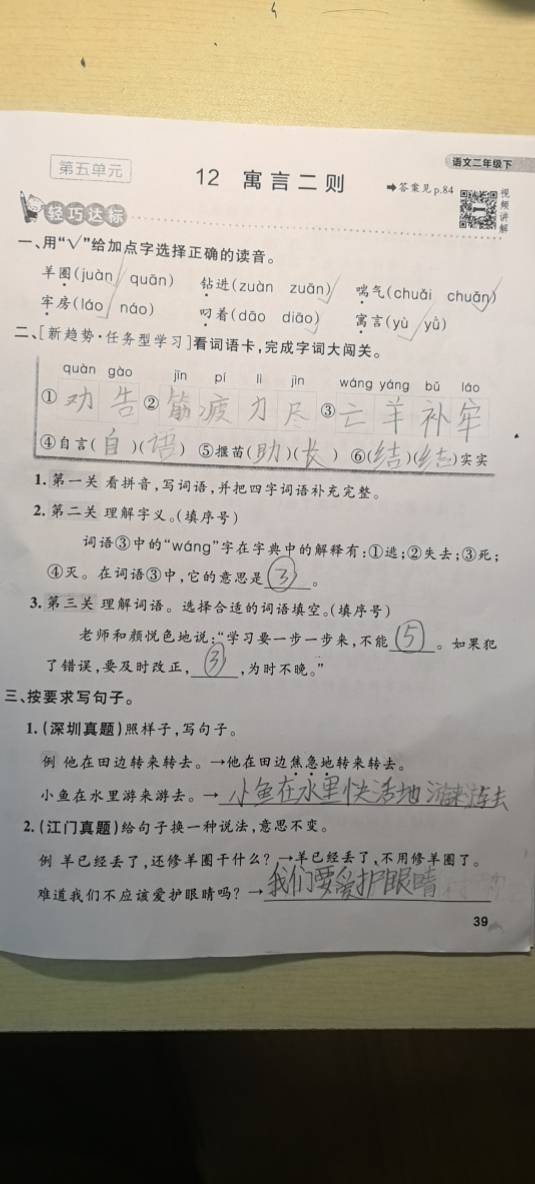 第五单元
语文二年级下
12 寓言二则
➡答案见p.84
视频讲解
轻巧达标
一、用“√”给加点字选择正确的读音。
羊圈(juàn quān) 钻进(zuàn zuān) 喘气(chuǎi chuǎn)
牢房(láo náo) 叼着(dāo diāo) 寓言(yù yǔ)
二、[新趋势·任务型学习]看词语卡,完成字词大闯关。
quàn gào jīn pí lì jìn wáng yáng bǔ láo
①劝告 ②筋疲力尽 ③亡羊补牢
④自言(自)(语) ⑤揠苗(助)(长) ⑥(结)(结)实实
1. 第一关 看拼音,写词语,并把四字词语补充完整。
2. 第二关 理解字义。(填序号)
词语③中的“wáng”字在字典中的解释有:①逃;②失去;③死;
④灭。在词语③中,它的意思是③。
3. 第三关 理解词语。选择合适的词语填空。(填序号)
老师和颜悦色地说:“学习要一步一步来,不能⑤。如果犯
了错误,要及时改正,③,为时不晚。”
三、按要求写句子。
1. (深圳真题)照样子,写句子。
例 他在田边转来转去。→他在田边焦急地转来转去。
小鱼在水里游来游去。→小鱼在水里快活地游来游去
2. (江门真题)给句子换一种说法,意思不变。
例 羊已经丢了,还修羊圈干什么?→羊已经丢了,不用修羊圈了。
难道我们不应该爱护眼睛吗?→我们要爱护眼睛
39